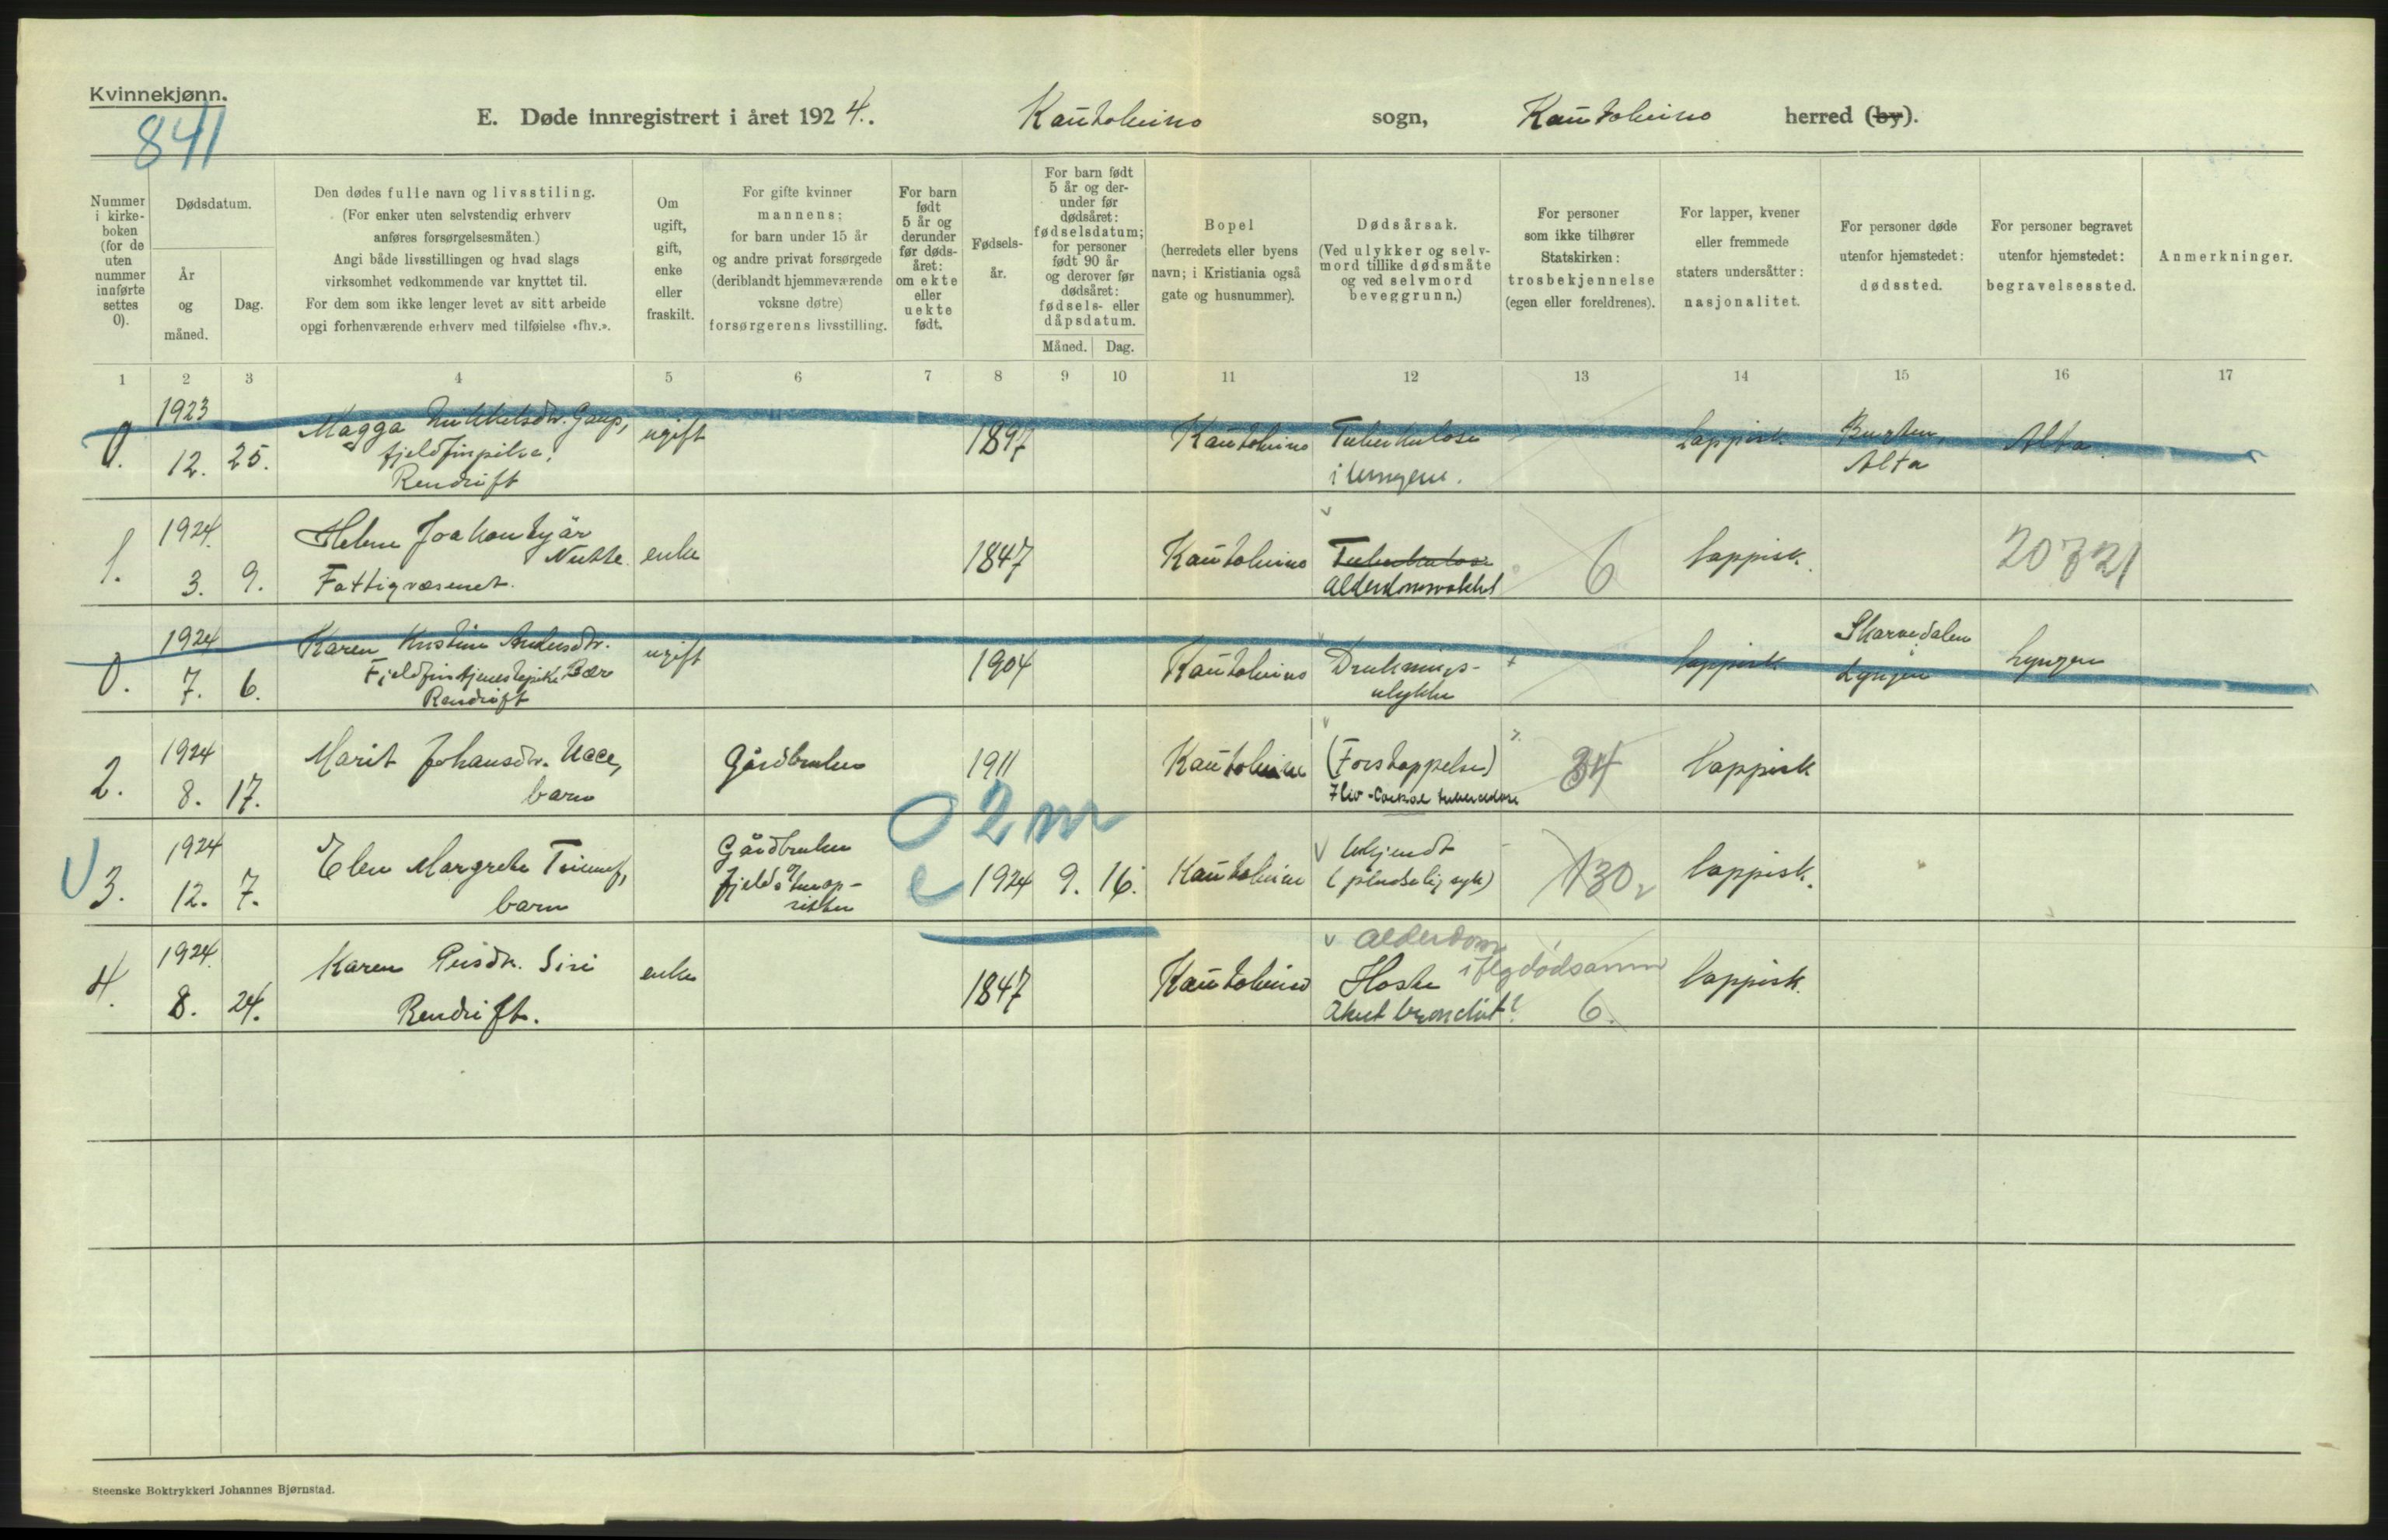 Kvinnekjønn.
841
E. Døde innregistrert i året 1924. Kautokeino sogn, Kautokeino herred (by).
Nummer i kirke-boken (for de uten nummer innførte settes 0).
Dødsdatum.
År og måned.
Dag.
Den dødes fulle navn og livsstiling.
(For enker uten selvstendig erhverv
anføres forsørgelsesmåten.)
Angi både livsstillingen og hvad slags
virksomhet vedkommende var knyttet til.
For dem som ikke lenger levet av sitt arbeide
opgi forhenværende erhverv med tilføielse «fhv.».
Om ugift, gift, enke eller fraskilt.
For gifte kvinner
mannens;
for barn under 15 år
og andre privat forsørgede
(deriblandt hjemmeværende
voksne døtre)
forsørgerens livsstilling.
For barn født 5 år og derunder før døds-året: om ekte eller uekte født.
Fødsels-år.
For barn født 5 år og der-under før dødsåret: fødselsdatum; for personer født 90 år og derover før dødsåret: fødsels- eller dåpsdatum.
Måned. Dag.
Bopel
(herredets eller byens
navn; i Kristiania også
gate og husnummer).
Dødsårsak.
(Ved ulykker og selv-
mord tillike dødsmåte
og ved selvmord
beveggrunn.)
For personer
som ikke tilhører
Statskirken:
trosbekjennelse
(egen eller foreldrenes).
For lapper, kvener
eller fremmede
staters undersåtter:
nasjonalitet.
For personer døde
utenfor hjemstedet:
dødssted.
For personer begravet
utenfor hjemstedet:
begravelsessted.
Anmerkninger.
1 2 3 4 5 6 7 8 9 10 11 12 13 14 15 16 17
0. 1923 12. 25. Magga Mikkelsdtr. Gaup, ugift 1897 Kautokeino Tuberkulose lappisk Alta
Rendrift i lungene. Alta
1. 1924. 3. 9. Helene Nutte enke 1847 Kautokeino Tuberkulose 6 lappisk. 20721
Fattigvæsenet. Alderdomssvakhet
0. 1924 7. 6. Karen Kristine Andersdtr. ugift 1904 Kautokeino Druknings- lappisk Skarvedalen Lyngen
Fjeldfin tjenestepike Bær ulykke Lyngen
Rendrift
2. 1924 8. 17. Marit Johansdtr. Gårdbruker 1911 Kautokeino (Forstoppelse) 34 lappisk
barn
0 2 m
3. 1924 12. 7. Elen Margrete Gårdbruker e 1924 9. 16. Kautokeino Ukjendt 130 lappisk.
barn (pludselig syk)
4. 1924. 8. 24. Karen Siri enke 1847 Kautokeino alderdom
Rendrift. Hoste lappisk.
Akut bronchit? 6.
Steenske Boktrykkeri Johannes Bjørnstad.